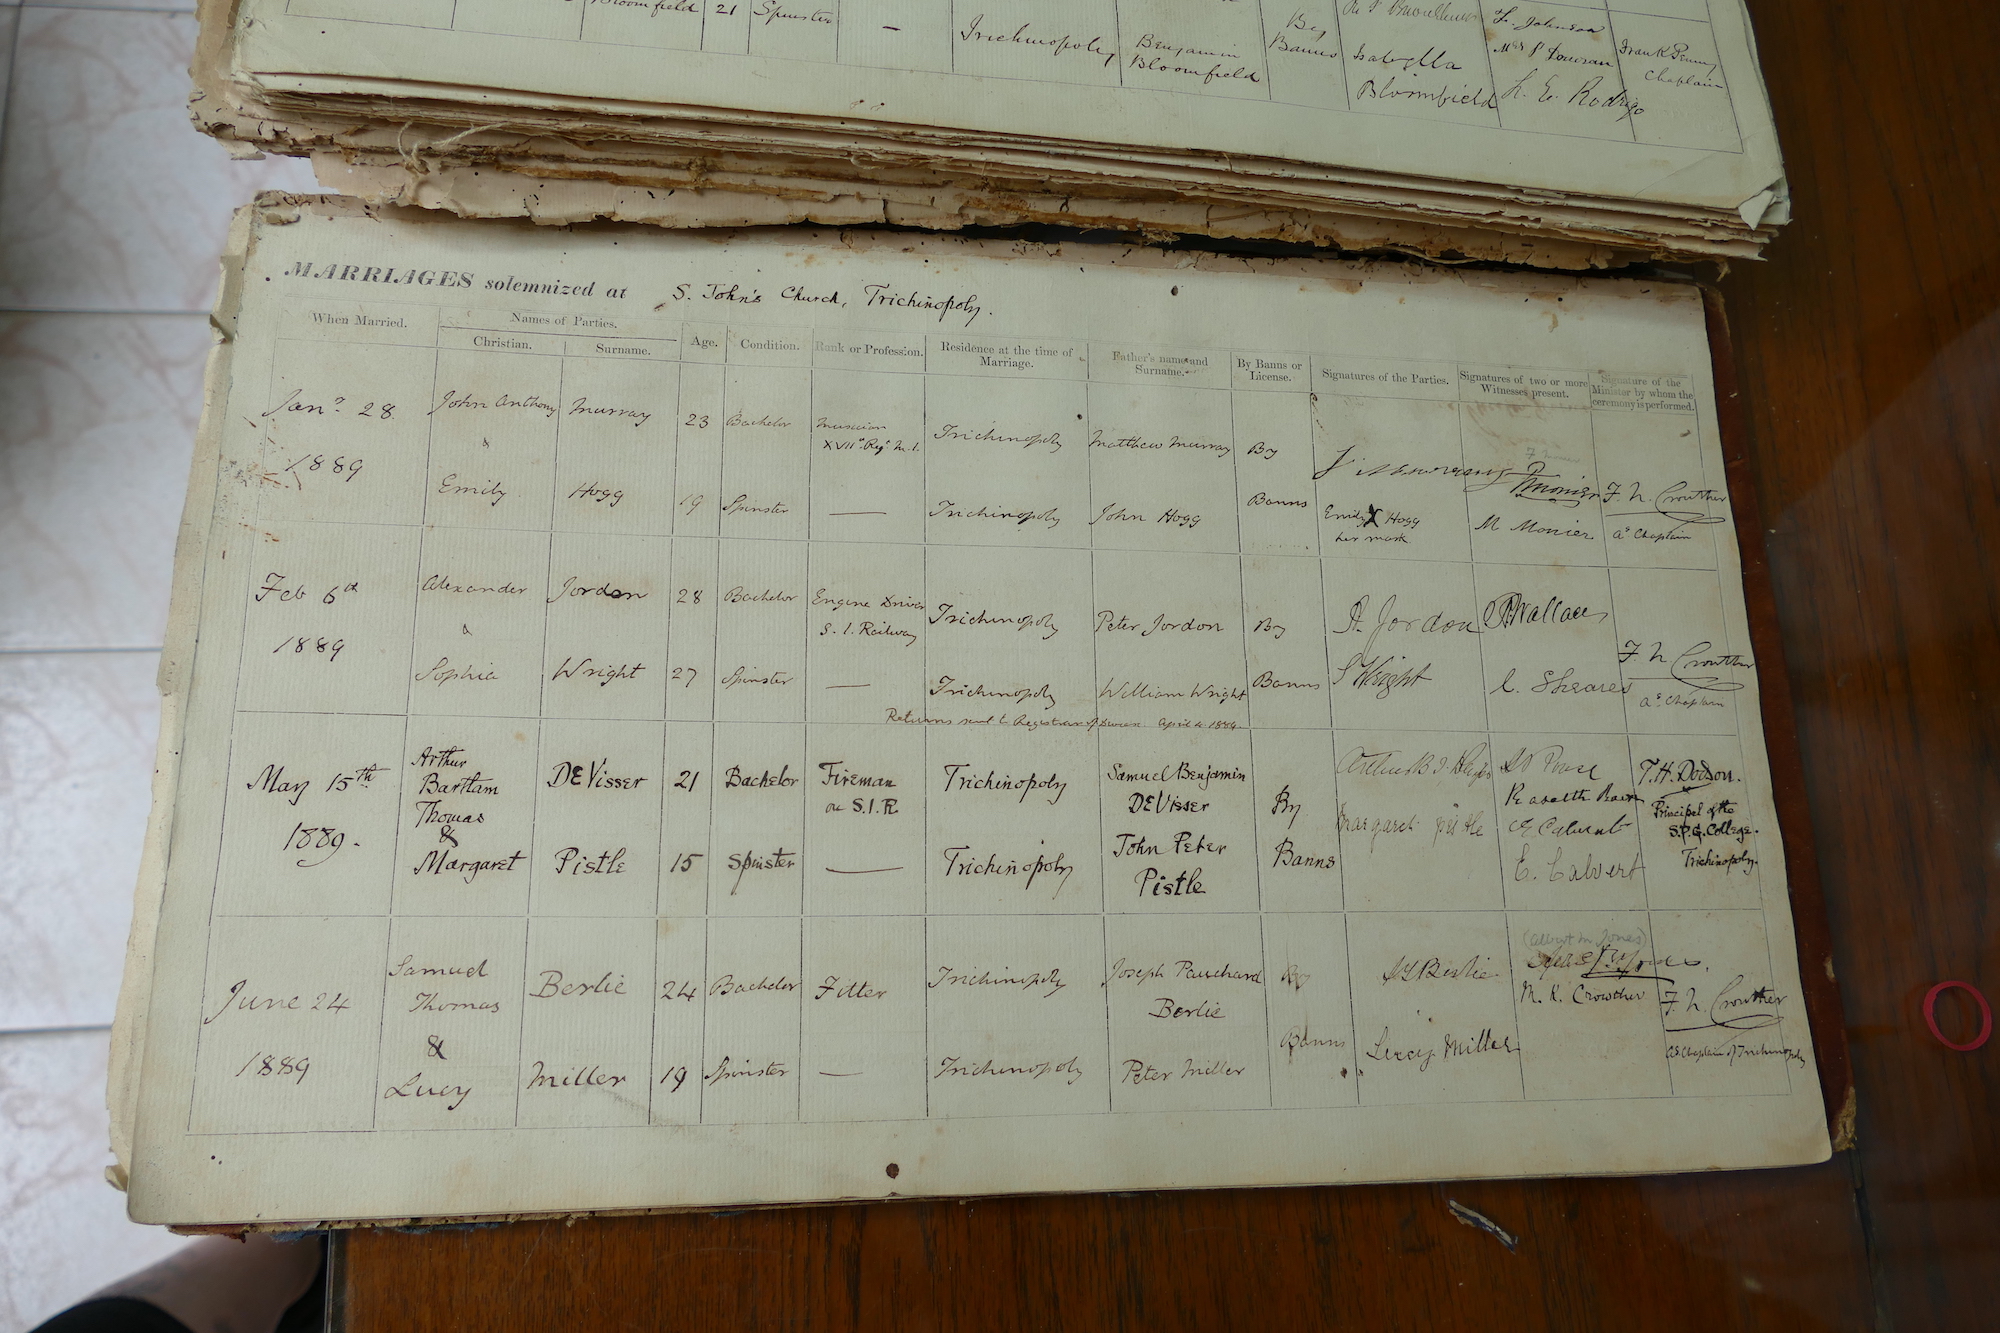 Bloomfield 21 Spinster — Trichinopoly Benjamin Bloomfield By Banns Isabella Bloomfield F. Johnson L. E. Rodrigo Frank Penny Chaplain
MARRIAGES solemnized at S. John's Church, Trichinopoly.
When Married. Names of Parties. Age. Condition. Rank or Profession. Residence at the time of Marriage. Father's name and Surname. By Banns or License. Signatures of the Parties. Signatures of two or more Witnesses present. Signature of the Minister by whom the ceremony is performed.
Christian. Surname.
Jany. 28 John Anthony Murray 23 Bachelor Musician XVIIth Regt. M.I. Trichinopoly Matthew Murray By J Murray Monier
1889 &
Emily Hogg 19 Spinster — Trichinopoly John Hogg Banns Emily X Hogg her mark M Monier F. N. Crowther ag Chaplain
Feb 6th Alexander Jordon 28 Bachelor Engine Driver S. I. Railway Trichinopoly Peter Jordon By A. Jordon Wallace
1889 &
Sophia Wright 27 Spinster — Trichinopoly William Wright Banns S Wright C. Sheares F. N. Crowther ag Chaplain
Returns sent to Registrar April 1889
May 15th Arthur Bartlam Thomas DEVisser 21 Bachelor Fireman on S.I.R Trichinopoly Samuel Benjamin DEVisser By T. H. Dodson. Principal of the S.P.G. College. Trichinopoly.
1889. &
Margaret Pistle 15 Spinster — Trichinopoly John Peter Pistle Banns Margaret Pistle E. Calvert
June 24 Samuel Thomas Berlie 24 Bachelor Fitter Trichinopoly Joseph Pauchard Berlie By S T Berlie (Albert M Jones)
1889 &
Lucy Miller 19 Spinster — Trichinopoly Peter Miller Banns Lucy Miller M. K. Crowther F. N. Crowther ag Chaplain of Trichinopoly